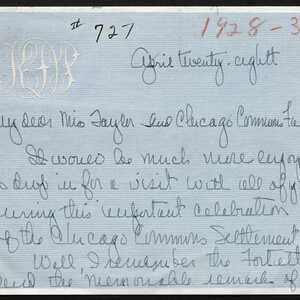 # 727
1928-3
April twenty-eight
My dear Miss Taylor and Chicago Commons Fa
I would be much more enjoy
drop in for a visit with all of y
uring this important celebration
of the Chicago Commons Settlement
Well, I remember the Fortieth
and the memorable remarks of